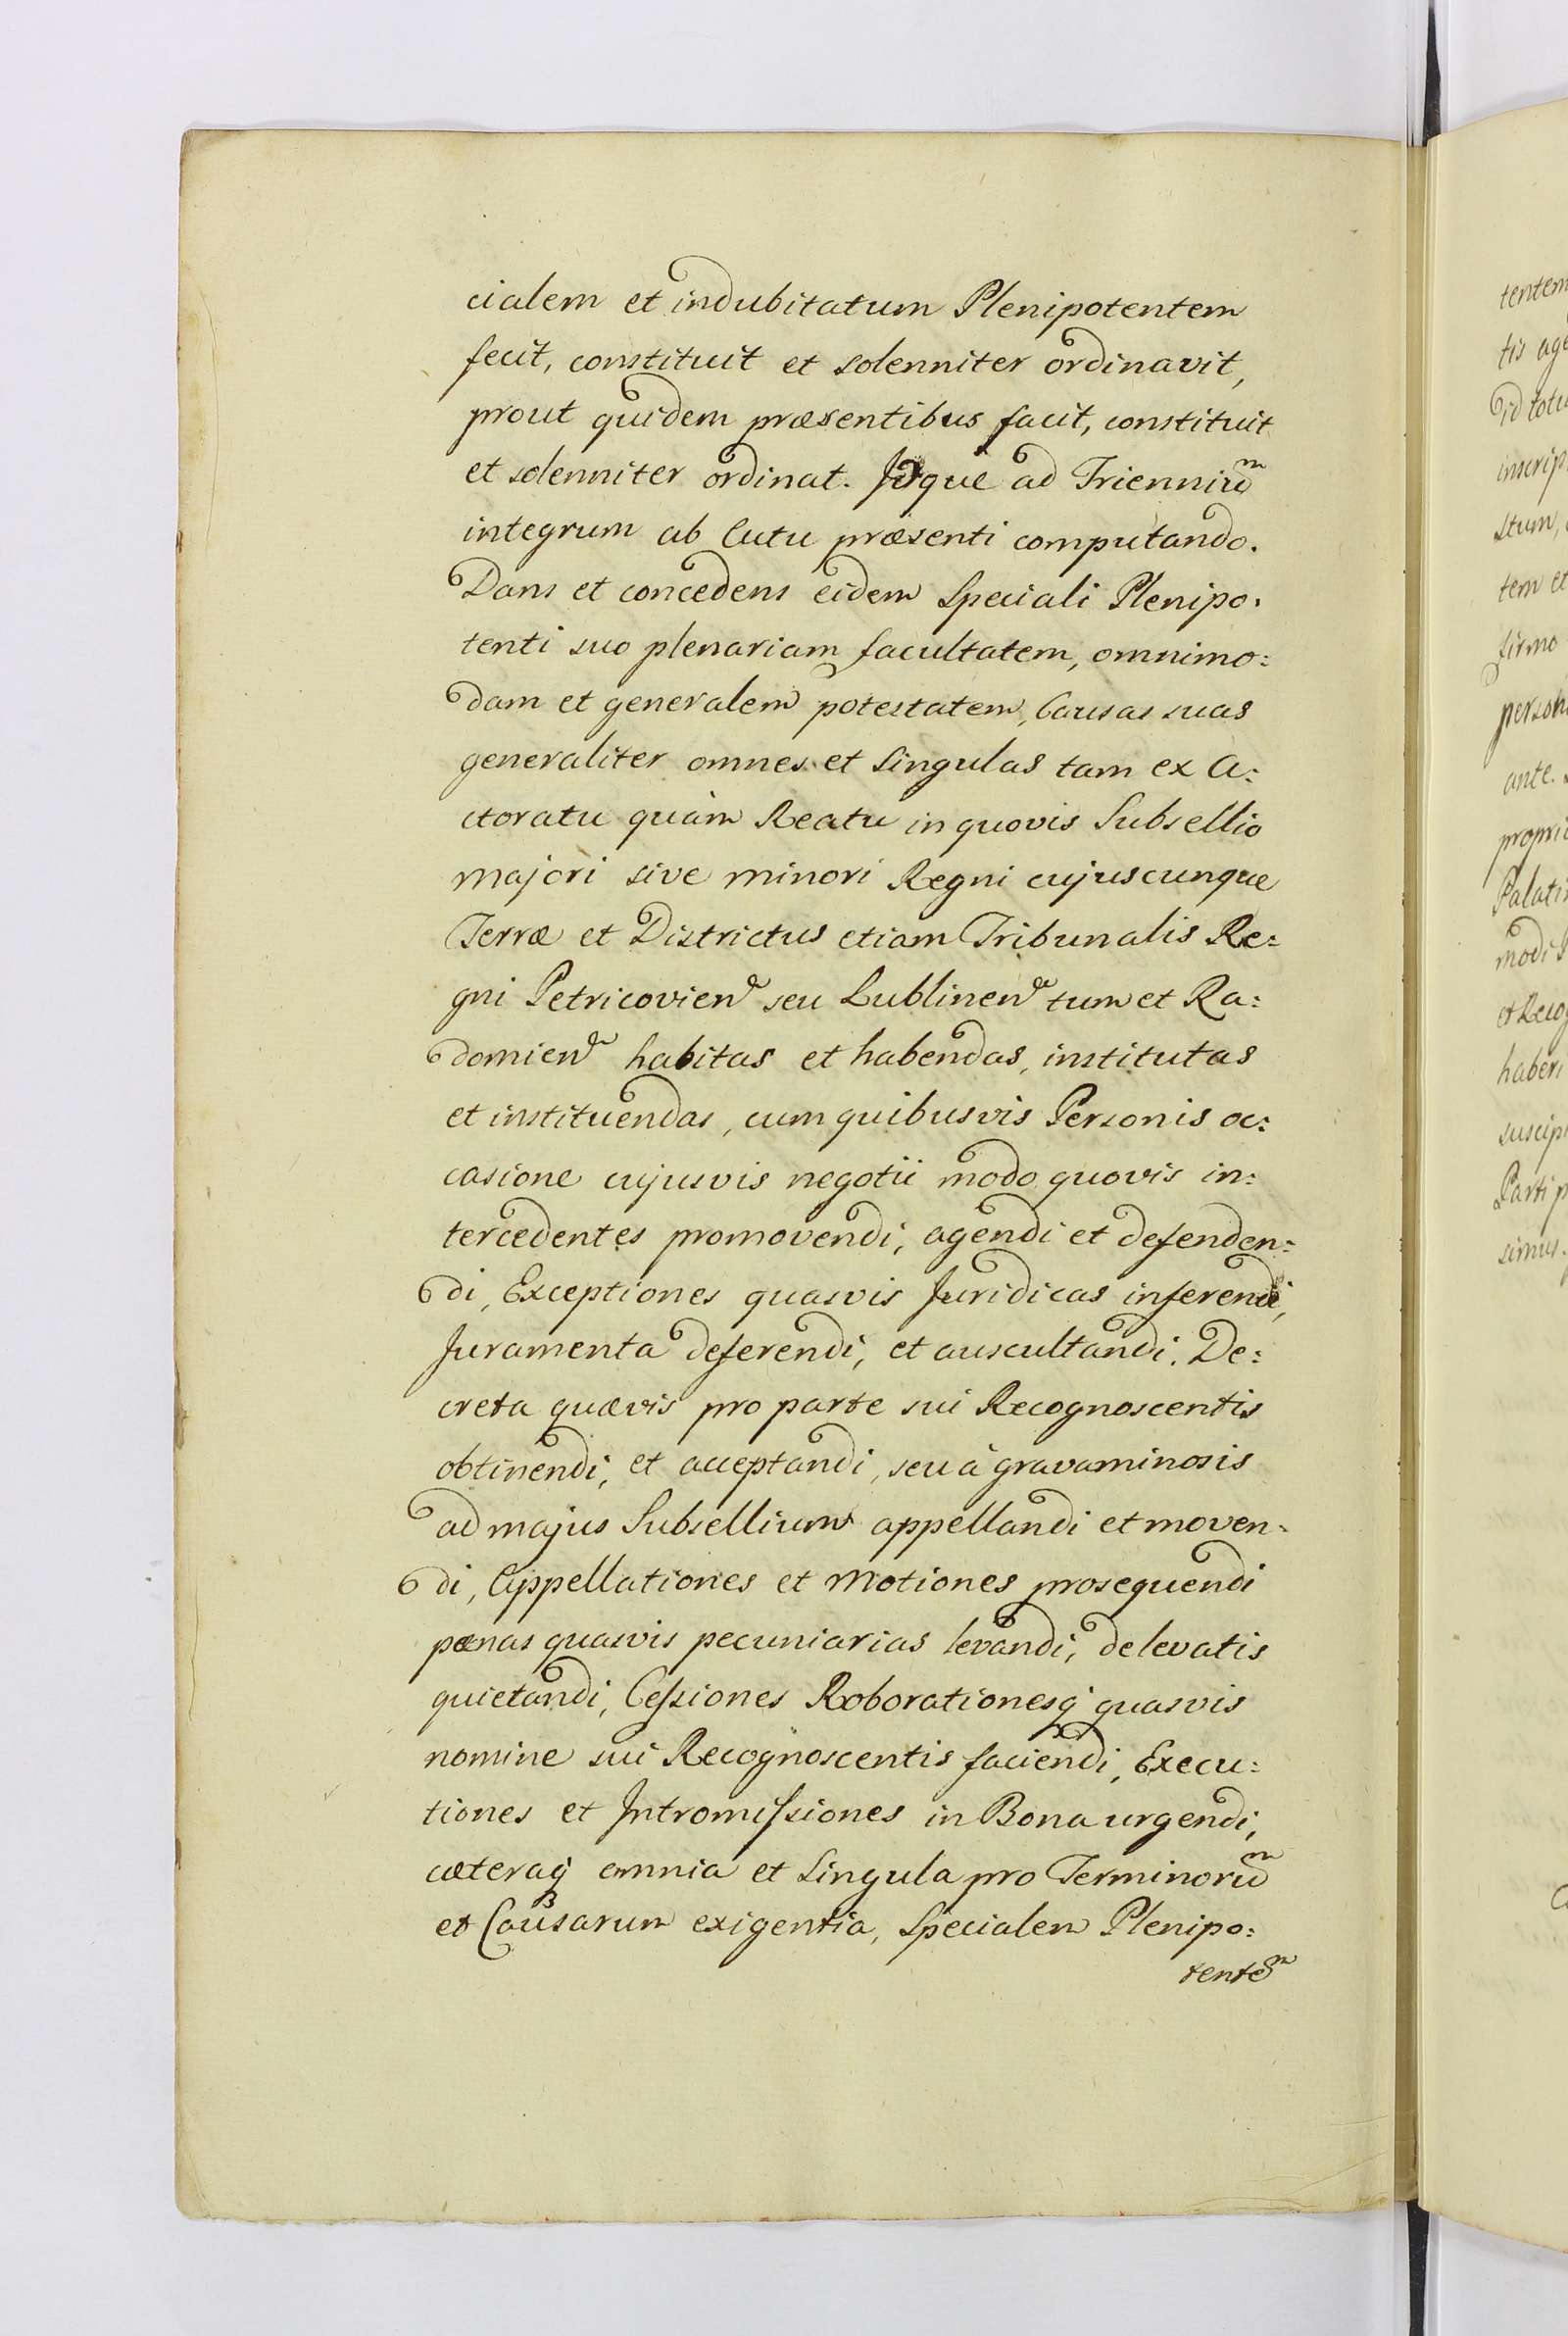 cialem et indubitatum Plenipotentem
fecit, constituit et solenniter ordinavit,
prout quidem præsentibus facit, constituit
et solenniter ordinat. Idque ad Trienniũm
integrum ab Actu præsenti computando.
Dans et concedens eidem Speciali Plenipo:
tenti suo plenariam facultatem, omnimo:
dam et generalem potestatem, Causas suas
generaliter omnes et singulas tam ex A:
ctoratu quàm Reatu in quovis Subsellio
majori sive minori Regni cujuscunque
Terræ et Districtus etiam Tribunalis Re:
gni Petricovien̄ seu Lublinen̄ tum et Ra:
domien̄ habitas et habendas, institutas
et instituendas, cum quibusvis Personis oc:
casione cujusvis negotii modo quovis in:
tercedentes promovendi, agendi et defenden:
di, Exceptiones quasvis Juridicas inferendi,
Juramenta deferendi, et auscultandi, De:
creta quævis pro parte sui Recognoscentis
obtinendi, et acceptandi, seu à gravaminosis
ad majus Subsellium appellandi et moven:
di, Appellationes et Motiones prosequendi
pœnas quasvis pecuniarias levandi, de levatis
quietandi, Cessiones Roborationesq́ quasvis
nomine sui Recognoscentis faciendi, Execu:
tiones et Intromissiones in Bona urgendi,
cæteraq́ omnia et singula pro Terminorũm
et Causarum exigentia, Specialem Plenipo:
tentem
tentem
tis
id
inscrip
stum,
tem et
firmo
ante.
modi
haberi
Parti
simus.